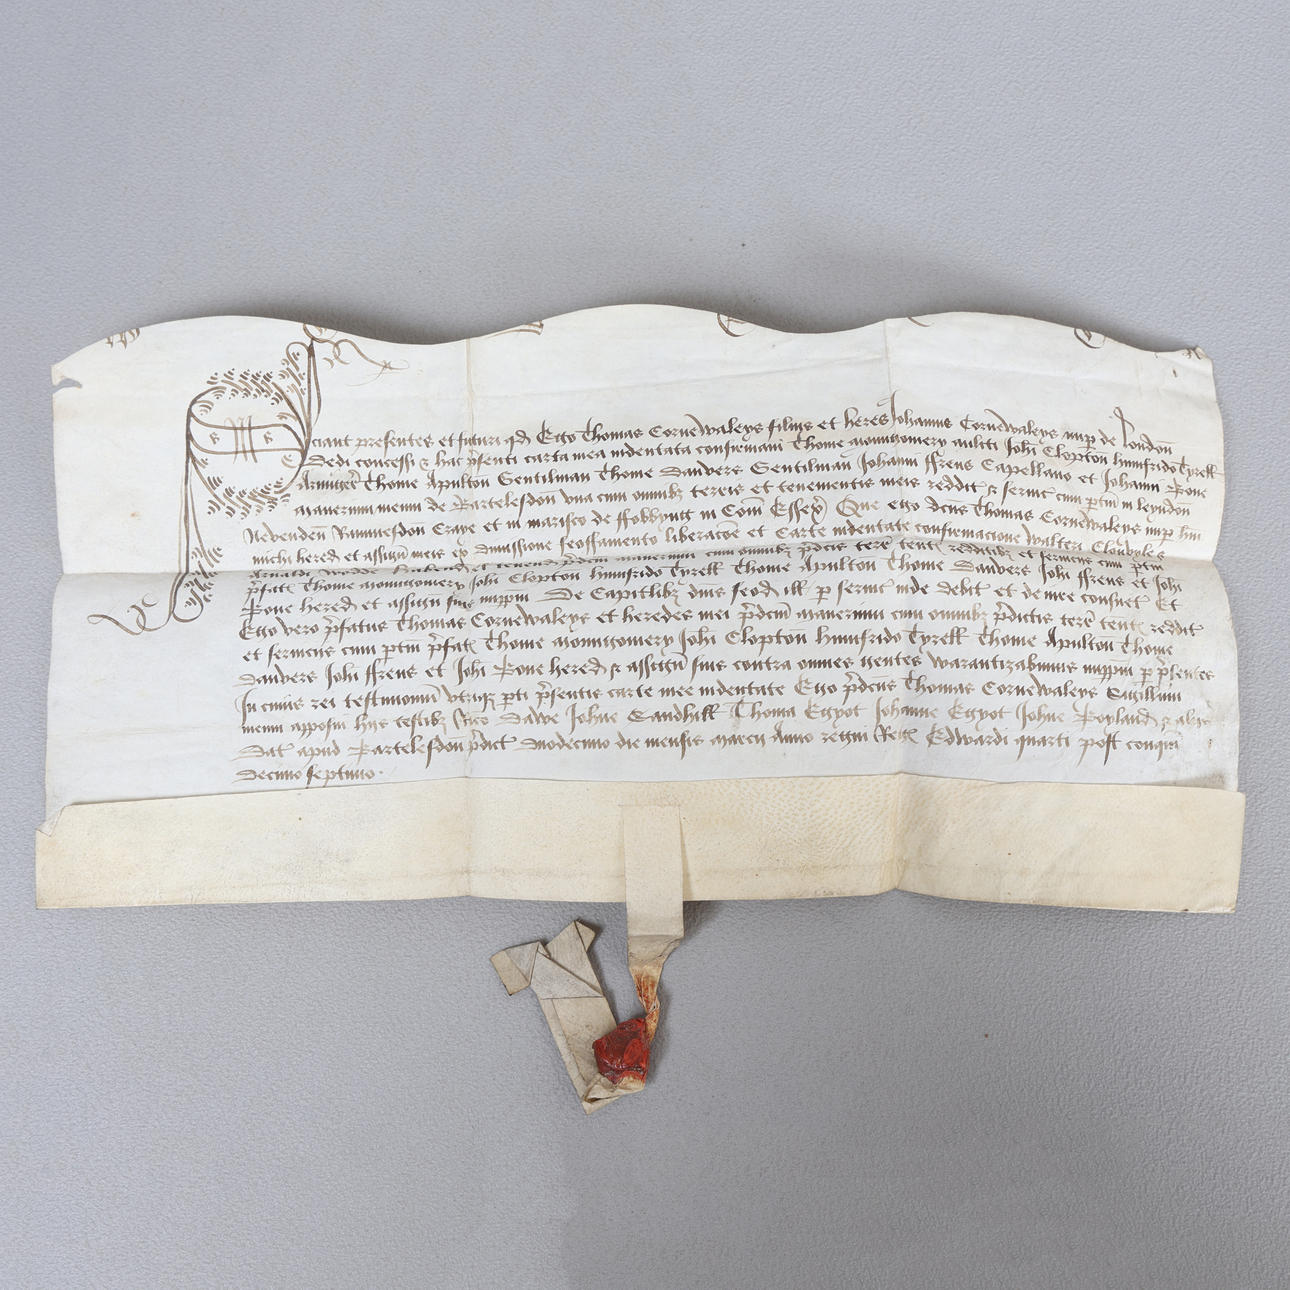 Sciant presentes et futuri qd Ego Thomas Cornewaleys filius et heres Johannis Cornewaleys nup de London
Dedi concessi & hac p̃senti carta mea indentata confirmavi Thome Mountgomery militi Joħi Clopton Humfrido Tyrell
Armigeř Thome Apulton Gentilman Thome Danvers Gentilman Johanni ffrens Capellano et Johanni Rone
Manerium meum de Bartelesdon una cum omnibȝ terris et tenementis meis reddit & servic cum ptin in Leyndon
Nevenden Ramuesdon Craye et in marisco de ffobbyng in Com Essex Que Ego dcus Thomas Cornewaleys nup hui
michi hered et assign meis ex dimissione feoffamento liberacõe et Carte indentate confirmacione Walteri
Arnaldi hend et tenend p̃dcm manerium cum omnibȝ p̃dcis terr̃ tent redditibȝ et serviciis cum ptin
p̃fatȩ Thome Mountgomery Joħi Clopton Humfrido Tyrell Thome Apulton Thome Danvers Joħi ffrens et Joħi
Rone hered et assign suis imppm De Capitlibȝ dnis feod ill p servic inde debit et de iure consuet Et
Ego vero p̃fatus Thomas Cornewaleys et heredes mei p̃dcm manerium cum omnibȝ p̃dictis terr̃ tent reddit
et serviciis cum ptin p̃fat Thome Mountgomery Joħi Clopton Humfrido Tyrell Thome Apulton Thome
Danvers Joħi ffrens et Joħi Rone hered & assign suis contra omnes gentes Warantizabimus imppm p p̃sentes
In cuius rei testimoniu utriqȝ pti p̃sentis carte mee indentate Ego p̃dcus Thomas Cornewaleys Sigillum
meum apposui hiis testibȝ Rico Dawe Johne Sandhill Thoma Egyot Johanne Egyot Johne Royland & aliis
Dat apud Bartelesdon p̃dict duodecimo die mensis Marcii Anno regni Regȩ Edwardi quarti post conqm
decimo septimo